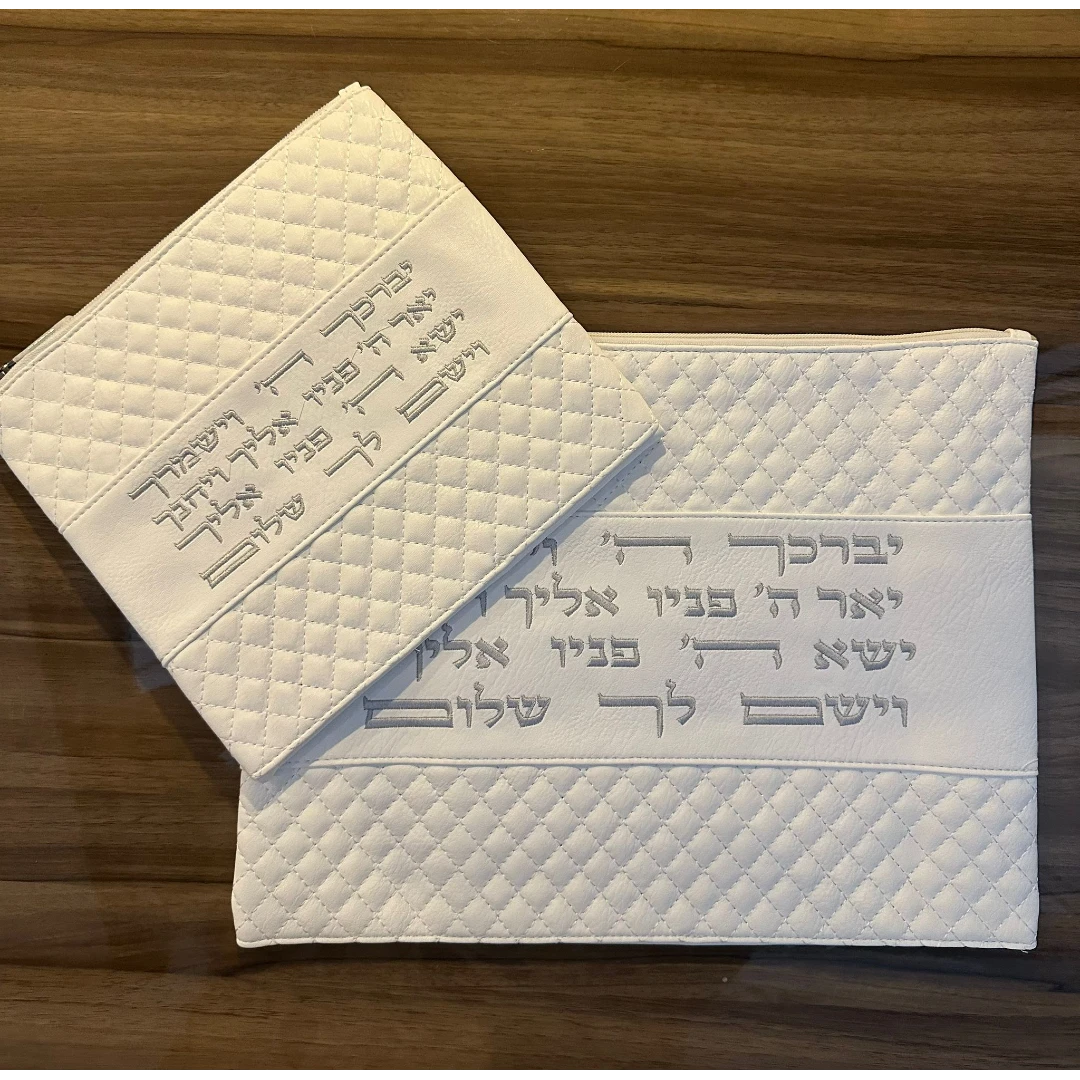 יברכך ה' וישמרך
יאר ה' פניו אליך ויחנך
ישא ה' פניו אליך
וישם לך שלום
יברכך ה' ו
יאר ה' פניו אליך
ישא ה' פניו אליך
וישם לך שלום